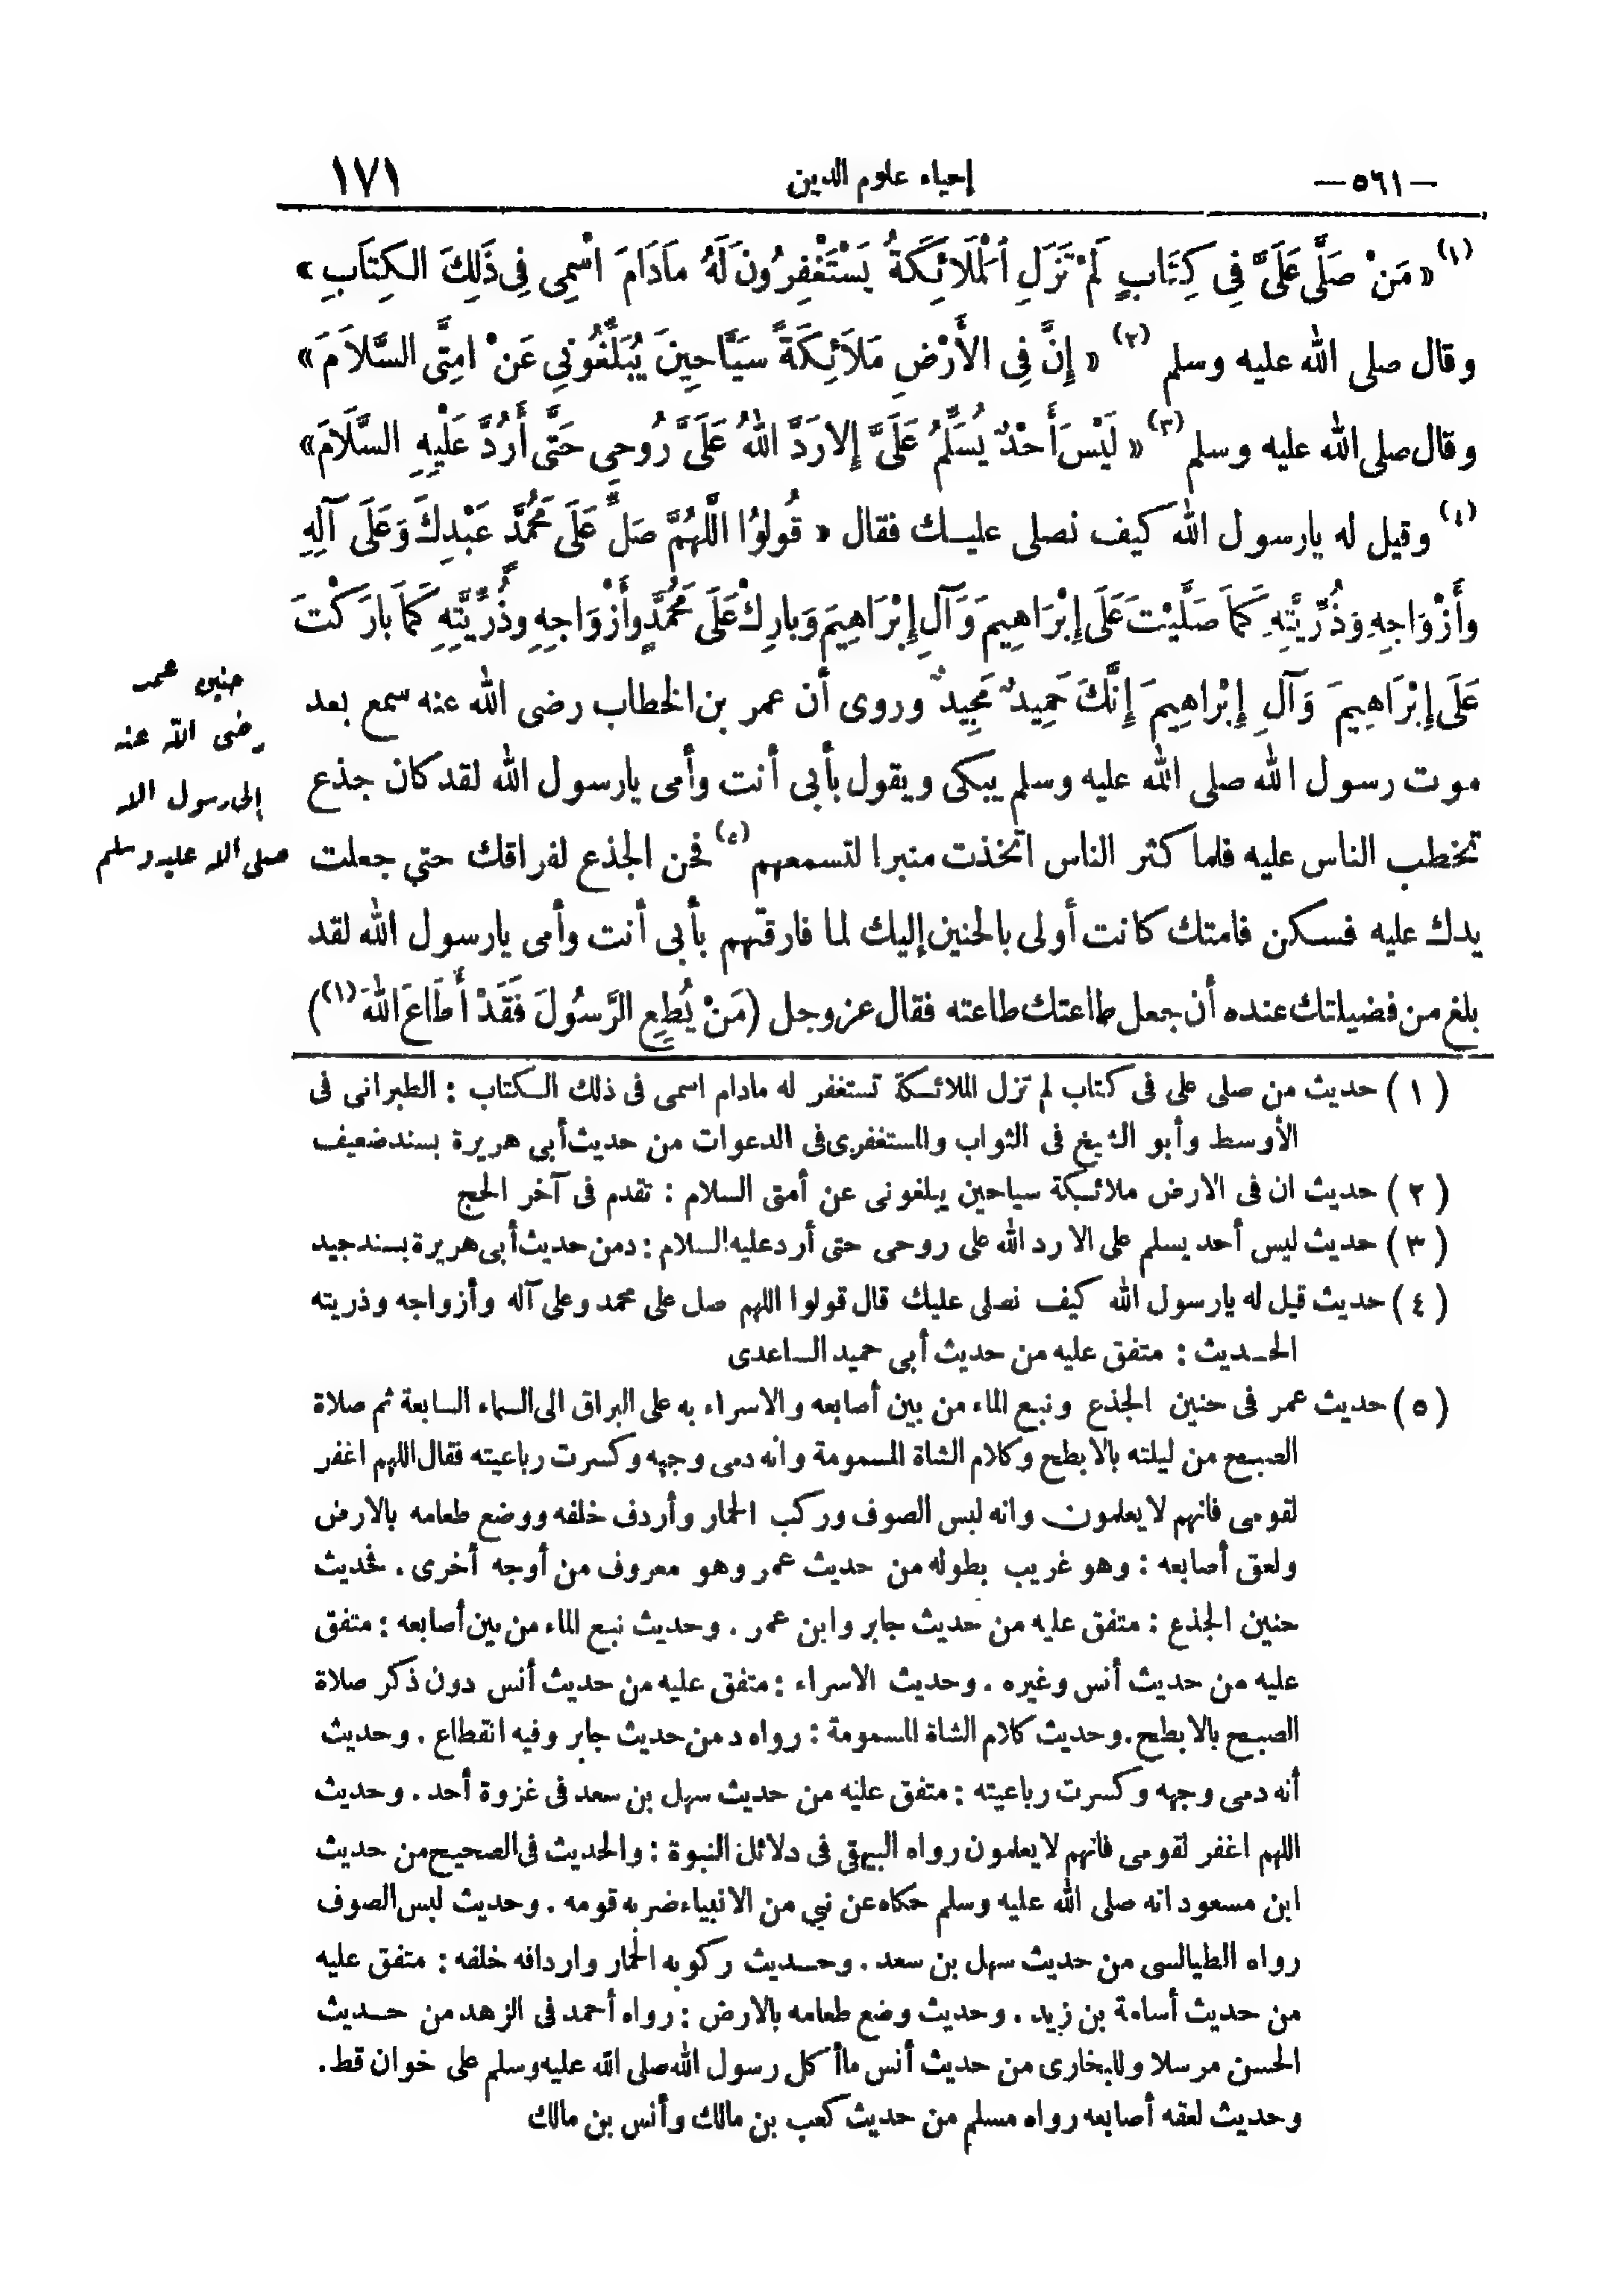 — ٥٦١ —
إحياء علوم الدين
١٧١
(١) « مَنْ صَلَّى عَلَىَّ فِى كِتَابٍ لَمْ تَزَلِ اْلمَلَائِكَةُ يَسْتَغْفِرُونَ لَهُ مادَامَ اسْمِى فِى ذَلِكَ الكِتاَبِ »
وقال صلى الله عليه وسلم (٢) « إِنَّ فِى الأَرْضِ مَلاَئِكَةً سَيَّاحِينَ يُبَلِّغُونِي عَنْ امِتَّى السَّلاَمَ »
وقال صلى الله عليه وسلم (٣) « لَيْسَ أَحَدٌ يُسَلِّمُ عَلَىَّ إِلا رَدَّ اللهُ عَلَىَّ رُوحِى حَتَّى أَرُدَّ عَلَيْهِ السَّلَامَ »
(٤) وقيل له يارسول الله كيف نصلى عليك فقال « قُولوُا الَّلهُمَّ صَلِّ عَلَى مُحَمَّدٍ عَبْدِكَ وَعَلَى آلِهِ
وأَزْوَاجِهِ وَذُرِّيَّتِهِ كَمَا صَلَّيْتَ عَلَى إِبْرَاهِيمَ وَآلِ إِبْرَاهِيمَ وَبارِكْ عَلَى مُحَمَّدٍ وأَزْوَاجِهِ وذُرِّيَّتِهِ كَمَا بارَكْتَ
عَلَى إِبْرَاهِيمَ وَآلِ إِبْراهِيمَ إِنَّكَ حَمِيدٌ مَجِيدٌ » وروى أن عمر بن الخطاب رضى الله عنه سمع بعد
موت رسول الله صلى الله عليه وسلم يبكى ويقول بأبى أنت وأمى يارسول الله لقد كان جذع
تخطب الناس عليه فلما كثر الناس اتخذت منبرا لتسمعهم (٥) فحن الجذع لفراقك حتى جعلت
يدك عليه فسكن فامتك كانت أولى بالحنين إليك لما فارقتهم بأبى أنت وأمى يارسول الله لقد
بلغ من فضيلتك عنده أن جعل طاعتك طاعته فقال عز وجل (مَنْ يُطِعِ الرَّسُولَ فَقَدْ أَطَاعَ اللهَ (١))
حنين عمر
رضى الله عنه
إلى رسول الله
صلى الله عليه وسلم
( ١ ) حديث من صلى على فى كتاب لم تزل الملائكة تستغفر له مادام اسمى فى ذلك الكتاب : الطبرانى فى
الأوسط وأبو الشيخ فى الثواب والمستغفرى فى الدعوات من حديث أبى هريرة بسند ضعيف
( ٢ ) حديث ان فى الارض ملائكة سياحين يبلغونى عن أمتى السلام : تقدم فى آخر الحج
( ٣ ) حديث ليس أحد يسلم على الا رد الله على روحى حتى أرد عليه السلام : د من حديث أبى هريرة بسند جيد
( ٤ ) حديث قيل له يارسول الله كيف نصلى عليك قال قولوا اللهم صل على محمد وعلى آله وأزواجه وذريته
الحديث : متفق عليه من حديث أبى حميد الساعدى
( ٥ ) حديث عمر فى حنين الجذع ونبع الماء من بين أصابعه والاسراء به على البراق الى السماء السابعة ثم صلاة
الصبح من ليلته بالابطح وكلام الشاة المسمومة وانه دمى وجهه وكسرت رباعيته فقال اللهم اغفر
لقومى فانهم لا يعلمون وانه لبس الصوف وركب الحمار وأردف خلفه ووضع طعامه بالارض
ولعق أصابعه : وهو غريب بطوله من حديث عمر وهو معروف من أوجه أخرى . فحديث
حنين الجذع : متفق عليه من حديث جابر وابن عمر . وحديث نبع الماء من بين أصابعه : متفق
عليه من حديث أنس وغيره . وحديث الاسراء : متفق عليه من حديث أنس دون ذكر صلاة
الصبح بالابطح . وحديث كلام الشاة المسمومة : رواه د من حديث جابر وفيه انقطاع . وحديث
أنه دمى وجهه وكسرت رباعيته : متفق عليه من حديث سهل بن سعد فى غزوة أحد . وحديث
اللهم اغفر لقومى فانهم لا يعلمون رواه البيهقى فى دلائل النبوة : والحديث فى الصحيح من حديث
ابن مسعود انه صلى الله عليه وسلم حكاه عن نبي من الانبياء ضربه قومه . وحديث لبس الصوف
رواه الطيالسى من حديث سهل بن سعد . وحديث ركوبه الحمار واردافه خلفه : متفق عليه
من حديث أسامة بن زيد . وحديث وضع طعامه بالارض : رواه أحمد فى الزهد من حديث
الحسن مرسلا وللبخارى من حديث أنس ماأكل رسول الله صلى الله عليه وسلم على خوان قط .
وحديث لعقه أصابعه رواه مسلم من حديث كعب بن مالك وأنس بن مالك